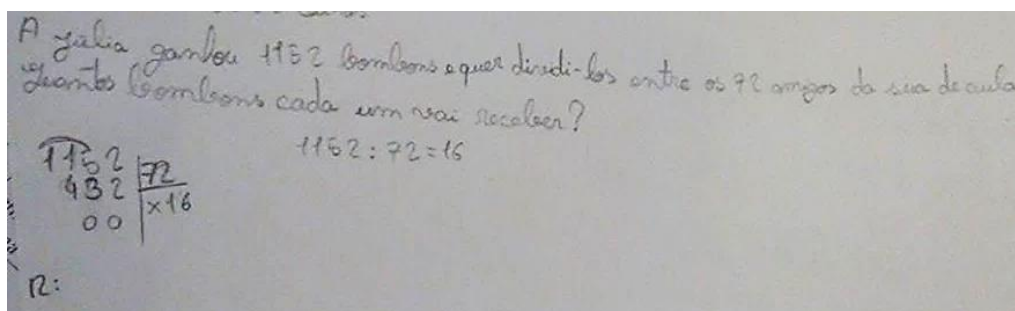 A Júlia ganhou 1152 bombons e quer dividi-los entre os 72 amigos da sua de aula
Quantos bombons cada um vai receber?
1152 : 72 = 16
1152 72
432 x16
00
R: